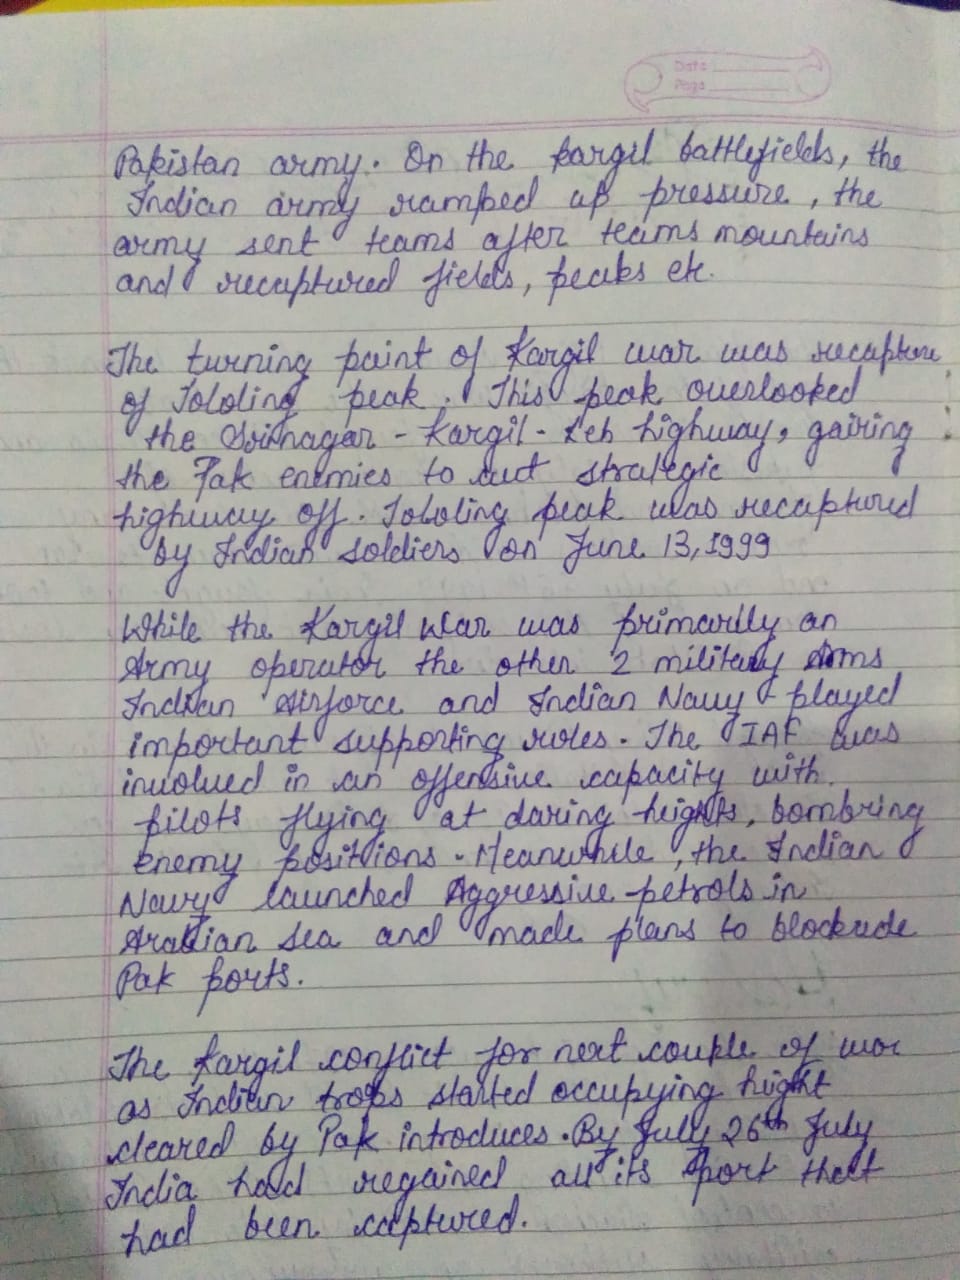 Date
Page
Pakistan army. On the kargil battlefields, the
Indian army ramped up pressure, the
army sent teams after teams mountains
and recaptured fields, peaks etc.
The turning point of Kargil war was recapture
of Tololing peak. This peak overlooked
the Srinagar - Kargil - Leh highway, gairing
the Pak enemies to cut strategic
highway off. Tololing peak was recaptured
by Indian soldiers on June 13, 1999
While the Kargil War was primarily an
Army operator the other 2 military Arms
Indian Airforce and Indian Navy played
important supporting roles. The IAF was
involved in an offensive capacity with
pilots flying at daring heights, bombring
enemy positions. Meanwhile, the Indian
Navy launched Aggressive petrols in
Arabian Sea and made plans to blockade
Pak ports.
The Kargil conflict for next couple of wor
as Indian trops started occupying hight
cleared by Pak introduces. By July 26th July
India had regained all its port that
had been captured.